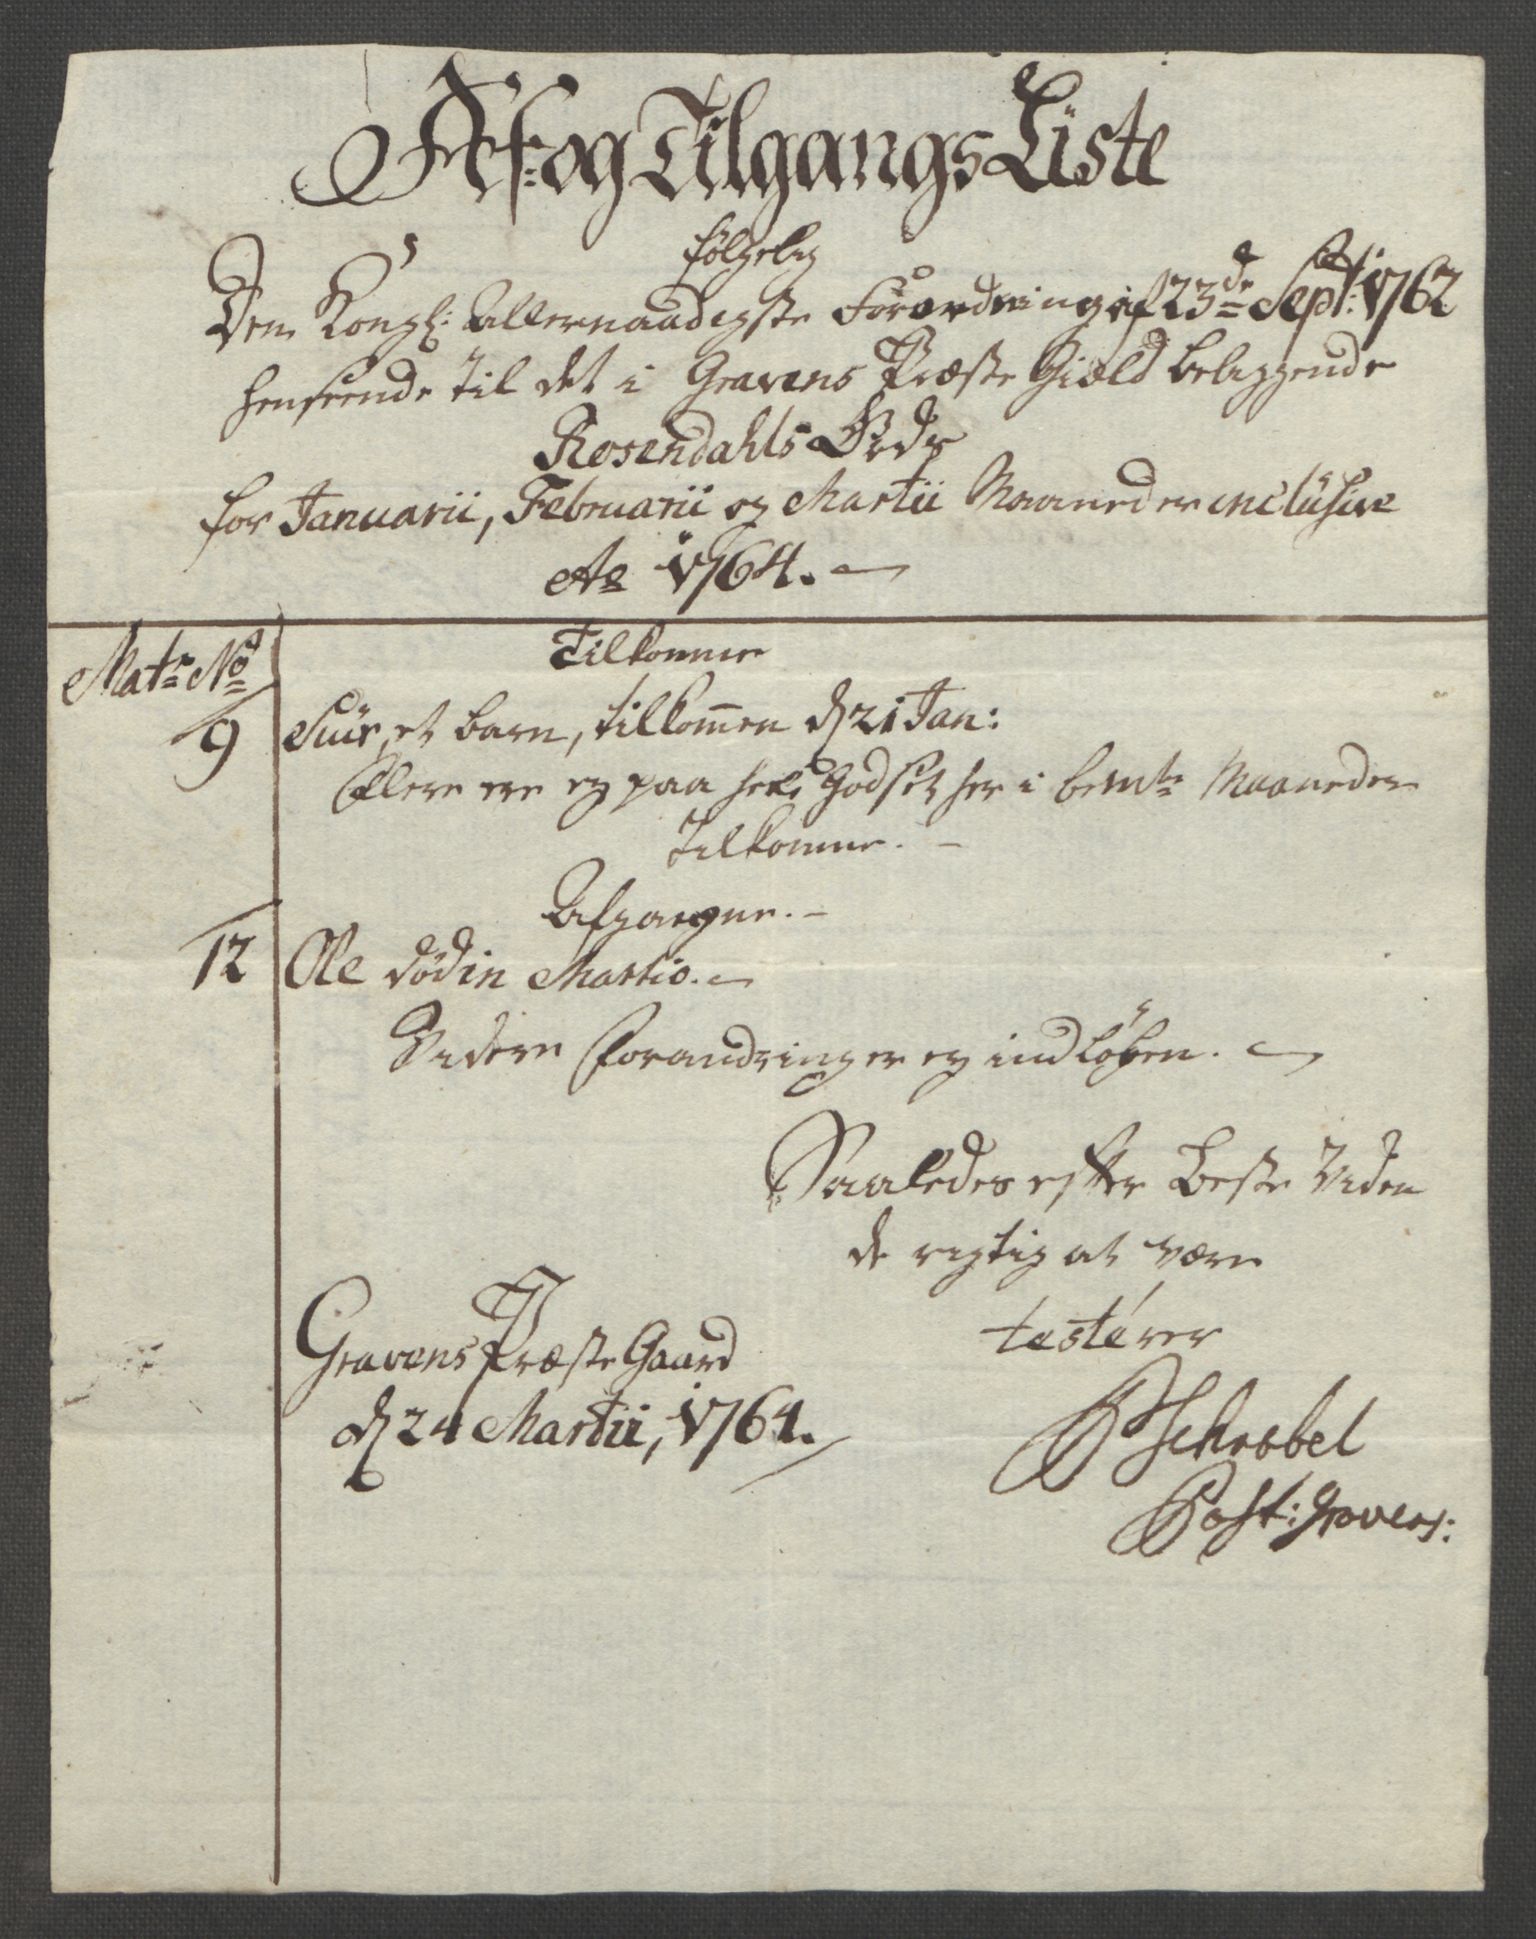 Af= og TilgangsListe
følgelig
Den Kongl: Allernaadigste Forordning af 23de Sept: 1762
henseende til det i Gravens Præste Giæld beliggende
Rosendahls Gods
for Januarii, Februarii og Martii Maaneder inclusive
Ao 1764.
Matr No
Tilkomne
9 Siur, et barn, tilkom̅en d 21 Jan:
Flere ere ey paa hele Godset her i bemte Maaneder
Tilkomne.
Afgangne.
12 Ole død in Martio.
Videre forandringer ey indløben.
Saaledes efter Beste Viden
de rigtig at være
testerer
Gravens Præste Gaard
d 24 Martii, 1764.
Schrøbel
Past: Gravens: